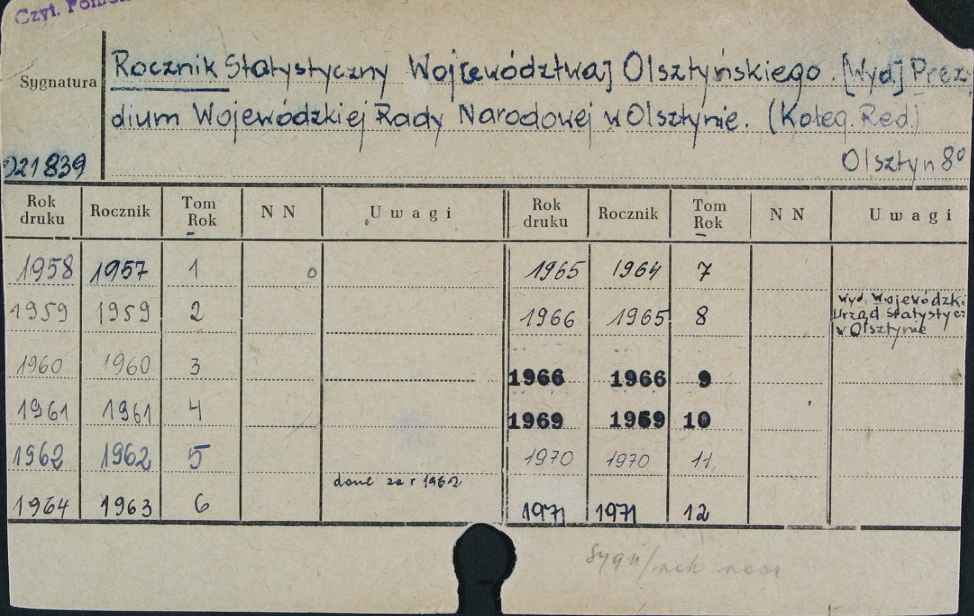 Czyt.
Rocznik Statystyczny Woj[ewództwa] Olsztyńskiego. [Wyd.] Prezy-
Sygnatura
dium Wojewódzkiej Rady Narodowej w Olsztynie. (Koleg. Red.)
021839
Olsztyn 8°
Rok druku Rocznik Tom Rok N N Uwagi Rok druku Rocznik Tom Rok N N Uwagi
1958 1957 1 1965 1964 7
1959 1959 2 1966 1965 8 Wyd. Wojewódzki
Urząd Statystycz
w Olsztynie
1960 1960 3 1966 1966 9
1961 1961 4 1969 1969 10
1962 1962 5 1970 1970 11
dane za r 1962
1964 1963 6 1971 1971 12